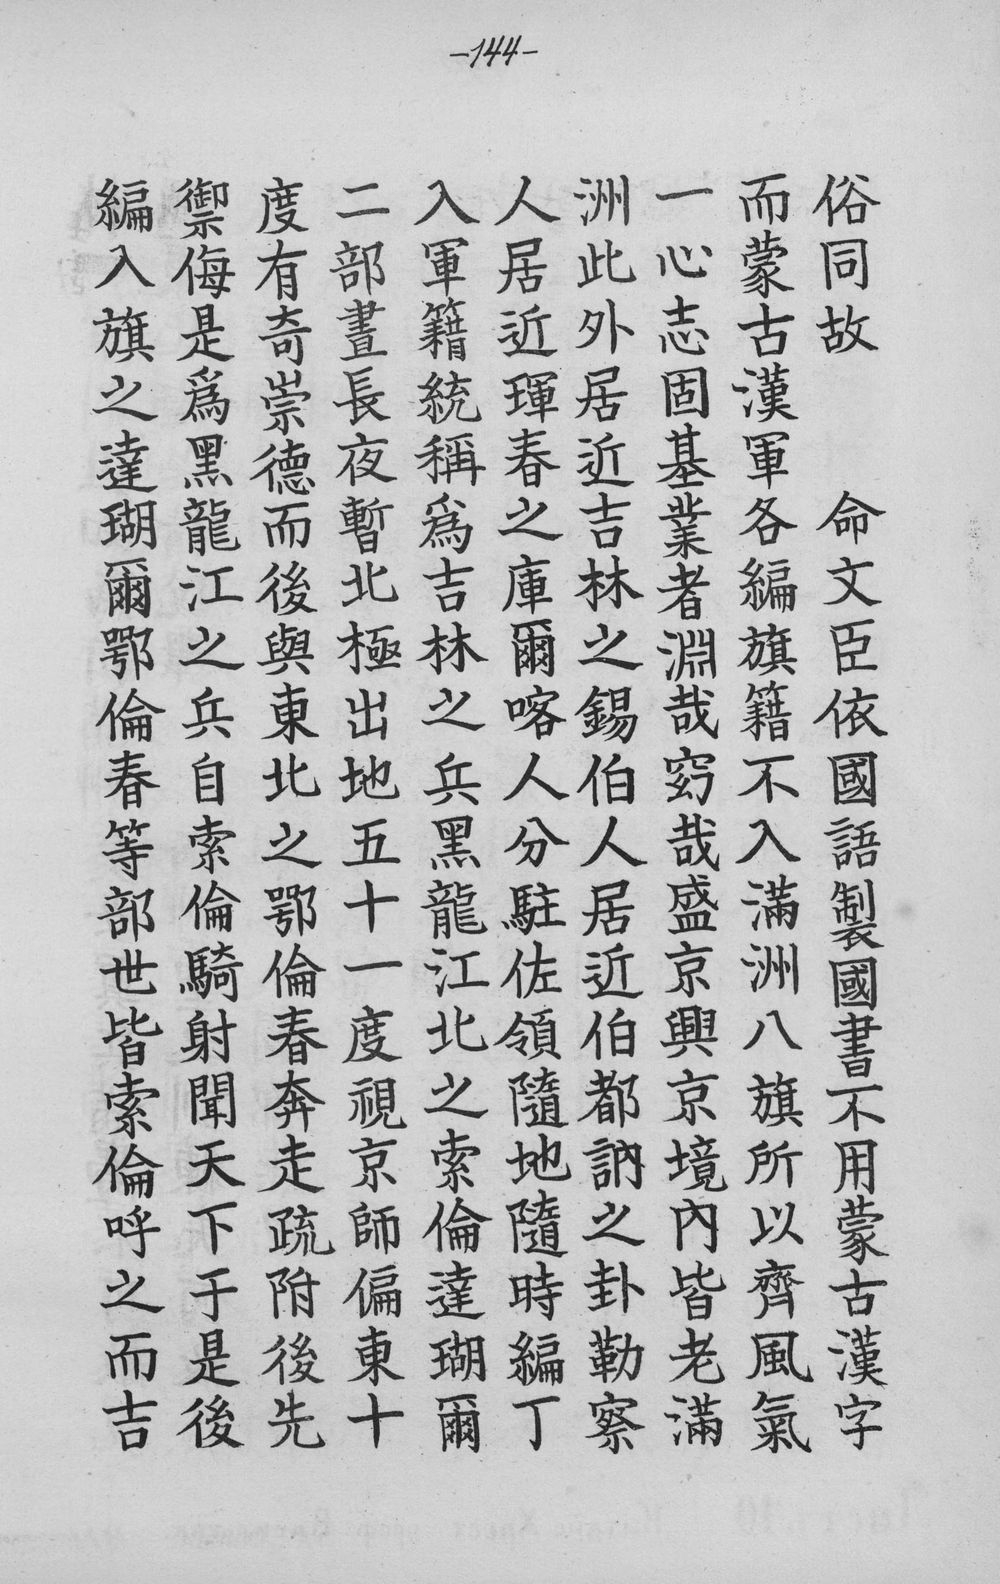 -144-
俗同故　命文臣依國語製國書不用蒙古漢字
而蒙古漢軍各編旗籍不入滿洲八旗所以齊風氣
一心志固基業者淵哉窈哉盛京興京境內皆老滿
洲此外居近吉林之錫伯人居近伯都訥之卦勒察
人居近琿春之庫爾喀人分駐佐領隨地隨時編丁
入軍籍統稱爲吉林之兵黑龍江北之索倫達瑚爾
二部晝長夜暫北極出地五十一度視京師偏東十
度有奇崇德而後與東北之鄂倫春奔走疏附後先
禦侮是爲黑龍江之兵自索倫騎射聞天下于是後
編入旗之達瑚爾鄂倫春等部世皆索倫呼之而吉